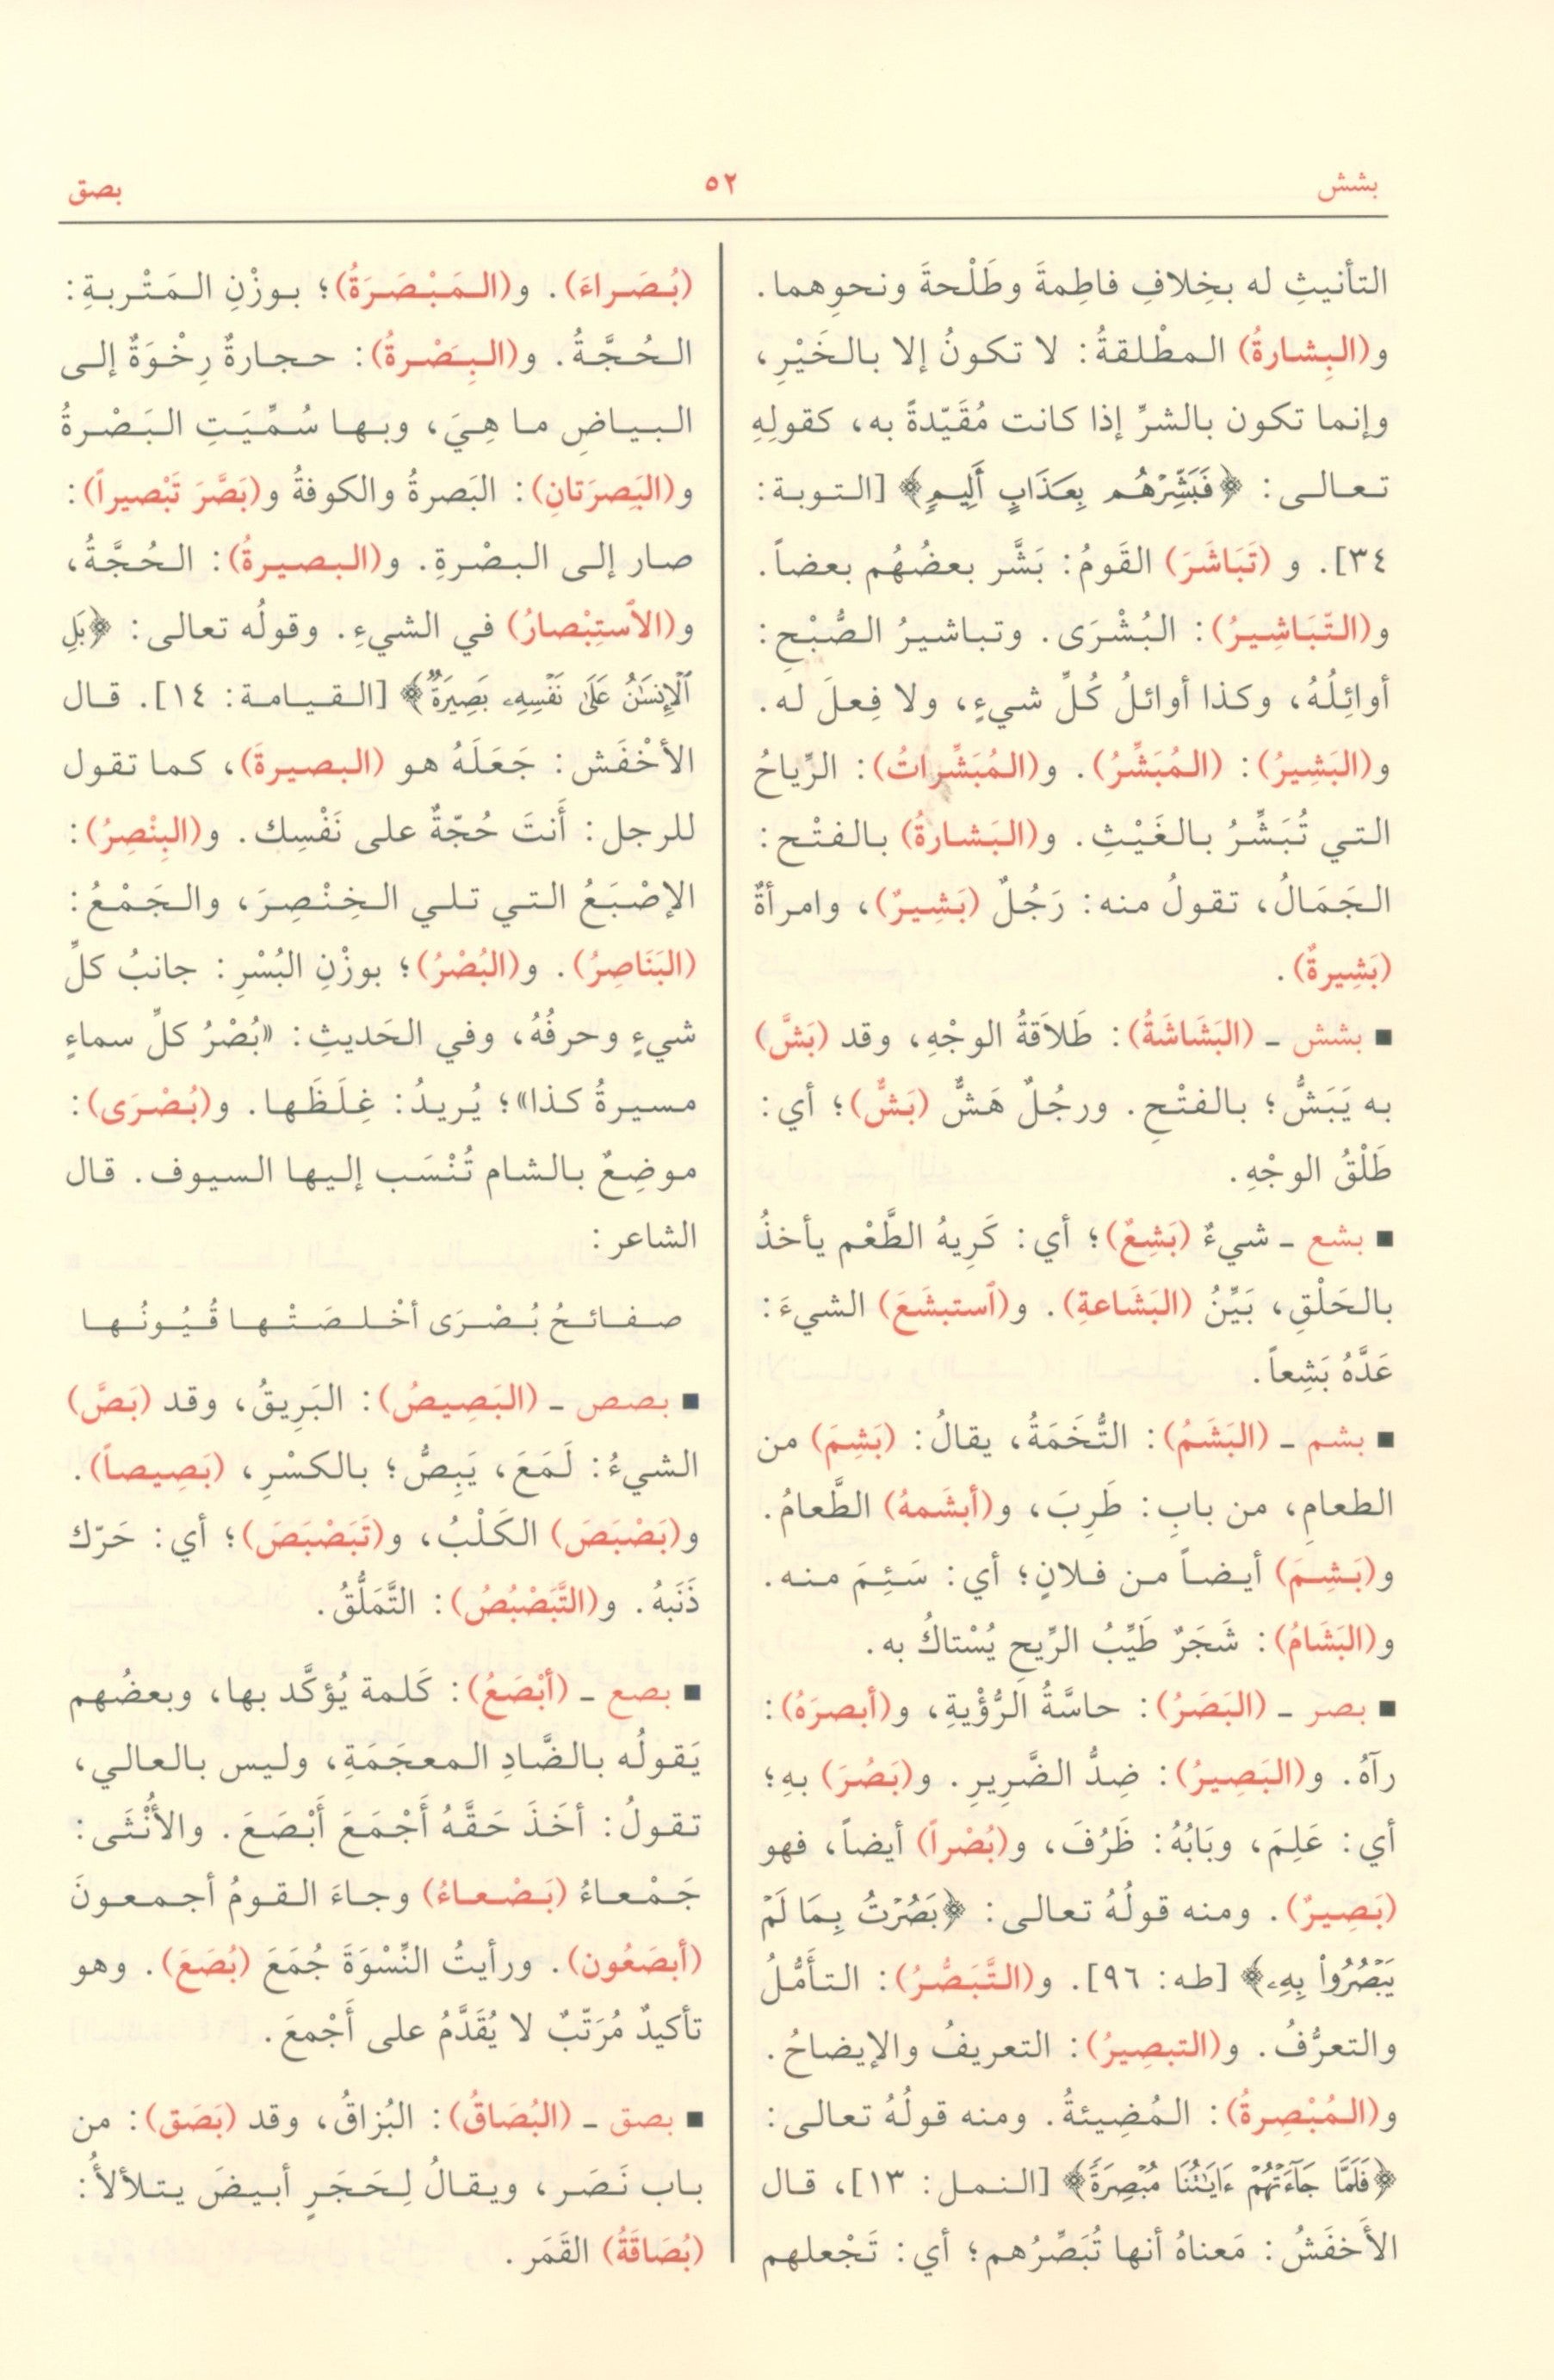 بشش ٥٢ بصق
التأنيثِ له بخِلافِ فاطِمةَ وطَلْحةَ ونحوِهما.
و(البِشارةُ) المطْلقةُ: لا تكونُ إلا بالخَيْرِ،
وإنما تكون بالشرِّ إذا كانت مُقَيّدةً به، كقولِهِ
تعالى: ﴿فَبَشِّرْهُم بِعَذَابٍ أَلِيمٍ﴾ [التوبة:
٣٤]. و (تَبَاشَرَ) القَومُ: بَشَّر بعضُهُم بعضاً.
و(التّبَاشِيرُ): البُشْرَى. وتباشيرُ الصُّبْحِ:
أوائِلُهُ، وكذا أوائلُ كُلِّ شيءٍ، ولا فِعلَ له.
و(البَشِيرُ): (المُبَشِّرُ). و(المُبَشِّراتُ): الرِّياحُ
التي تُبَشِّرُ بالغَيْثِ. و(البَشارةُ) بالفتْح:
الجَمَالُ، تقولُ منه: رَجُلٌ (بَشِيرٌ)، وامرأةٌ
(بَشِيرةٌ).
■ بشش ـ (البَشَاشَةُ): طَلاَقةُ الوجْهِ، وقد (بَشَّ)
به يَبَشُّ؛ بالفتْحِ. ورجُلٌ هَشٌّ (بَشٌّ)؛ أي:
طَلْقُ الوجْهِ.
■ بشع ـ شيءٌ (بَشِعٌ)؛ أي: كَرِيهُ الطَّعْم يأخذُ
بالحَلْقِ، بَيِّنُ (البَشَاعةِ). و(ٱستبشَعَ) الشيءَ:
عَدَّهُ بَشِعاً.
■ بشم ـ (البَشَمُ): التُّخَمَةُ، يقالُ: (بَشِمَ) من
الطعامِ، من بابِ: طَرِبَ، و(أبشَمهُ) الطَّعامُ.
و(بَشِمَ) أيضاً من فلانٍ؛ أي: سَئِمَ منه.
و(البَشَامُ): شَجَرٌ طَيِّبُ الرِّيحِ يُسْتاكُ به.
■ بصر ـ (البَصَرُ): حاسَّةُ الرُّؤْيةِ، و(أبصرَهُ):
رآهُ. و(البَصِيرُ): ضِدُّ الضَّرِيرِ. و(بَصُرَ) بهِ؛
أي: عَلِمَ، وبَابُهُ: ظَرُفَ، و(بُصْراً) أيضاً، فهو
(بَصِيرٌ). ومنه قولُهُ تعالى: ﴿بَصُرْتُ بِمَا لَمْ
يَبْصُرُواْ بِهِۦ﴾ [طه: ٩٦]. و(التَّبَصُّرُ): التأَمُّلُ
والتعرُّفُ. و(التبصِيرُ): التعريفُ والإيضاحُ.
و(المُبْصِرةُ): المُضِيئةُ. ومنه قولُهُ تعالى:
﴿فَلَمَّا جَآءَتْهُمْ ءَايَـٰتُنَا مُبْصِرَةً﴾ [النمل: ١٣]، قال
الأَخفَشُ: مَعناهُ أنها تُبَصِّرُهم؛ أي: تَجْعلهم
(بُصَراءَ). و(المَبْصَرَةُ)؛ بوزْنِ المَتْربةِ:
الحُجَّةُ. و(البِصَْرةُ): حجارةٌ رِخْوَةٌ إلى
البياضِ ما هِيَ، وبها سُمِّيَتِ البَصْرةُ
و(البَصِرَتانِ): البَصرةُ والكوفةُ و(بَصَّرَ تَبْصيراً):
صار إلى البصْرةِ. و(البصيرةُ): الحُجَّةُ،
و(الاٌستِبْصارُ) في الشيءِ. وقولُه تعالى: ﴿بَلِ
ٱلْإِنسَـٰنُ عَلَىٰ نَفْسِهِۦ بَصِيرَةٌ﴾ [القيامة: ١٤]. قال
الأخْفَش: جَعَلَهُ هو (البصيرةَ)، كما تقول
للرجل: أَنتَ حُجّةٌ على نَفْسِك. و(البِنْصِرُ):
الإصْبَعُ التي تلي الخِنْصِرَ، والجَمْعُ:
(البَنَاصِرُ). و(البُصْرُ)؛ بوزْنِ البُسْرِ: جانبُ كلِّ
شيءٍ وحرفُهُ، وفي الحَديثِ: «بُصْرُ كلِّ سماءٍ
مسيرةُ كذا»؛ يُريدُ: غِلَظَها. و(بُصْرَى):
موضِعٌ بالشام تُنْسَب إليها السيوف. قال
الشاعر:
صفائحُ بُصْرَى أخْلصَتْها قُيُونُها
■ بصص ـ (البَصِيصُ): البَرِيقُ، وقد (بَصَّ)
الشيءُ: لَمَعَ، يَبِصُّ؛ بالكسْرِ، (بَصِيصاً).
و(بَصْبَصَ) الكَلْبُ، و(تَبَصْبَصَ)؛ أي: حَرّك
ذَنَبهُ. و(التَّبَصْبُصُ): التَّمَلُّقُ.
■ بصع ـ (أبْصَعُ): كَلمة يُؤكَّد بها، وبعضُهم
يَقولُه بالضَّادِ المعجَمَةِ، وليس بالعالي،
تقولُ: أخَذَ حَقَّهُ أَجْمَعَ أَبْصَعَ. والأُنْثَى:
جَمْعاءُ (بَصْعاءُ) وجاءَ القومُ أجمعونَ
(أبصَعُون). ورأيتُ النِّسْوَةَ جُمَعَ (بُصَعَ). وهو
تأكيدٌ مُرَتّبٌ لا يُقَدَّمُ على أَجْمعَ.
■ بصق ـ (البُصَاقُ): البُزاقُ، وقد (بَصَق): من
باب نَصَر، ويقالُ لِحَجَرٍ أبيضَ يتلألأُ:
(بُصَاقَةُ) القَمَر.